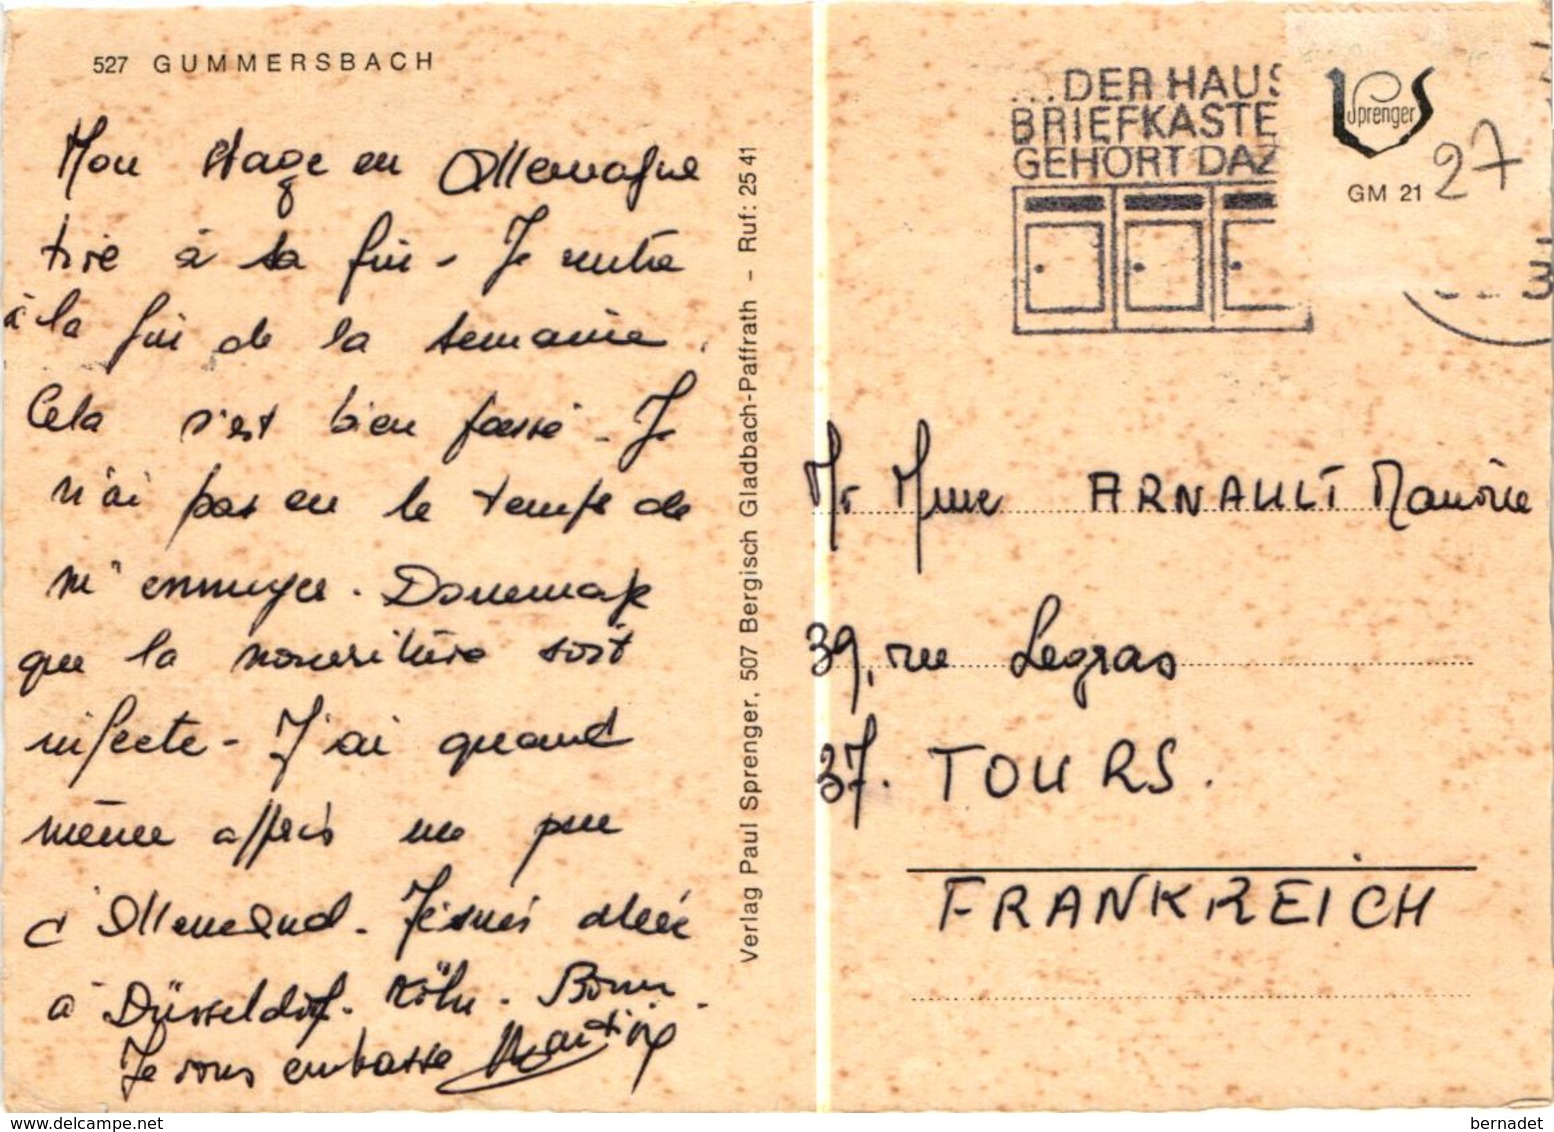 527 GUMMERSBACH
Mon stage en Allemagne
tire à sa fin - Je rentre
à la fin de la semaine.
Cela s'est bien passé - Je
n'ai pas eu le temps de
m'ennuyer. Dommage
que la nourriture soit
infecte - J'ai quand
même appris un peu
d'Allemand. Je suis allée
à Düsseldorf - Köln - Bonn.
Je vous embrasse Martine
Verlag Paul Sprenger, 507 Bergisch Gladbach-Paffrath – Ruf: 25 41
...DER HAUS
BRIEFKASTE
GEHÖRT DAZ
Sprenger
GM 21
27
3
Mr Mme ARNAULT Maurice
39, rue Legras
37. TOURS.
FRANKREICH
www.delcampe.net
bernadet